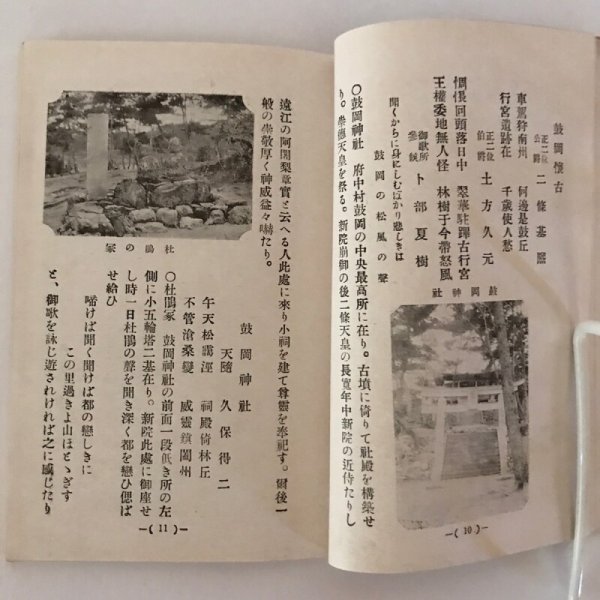 鼓岡懷古
正二位公爵 二條基弘
車駕狩南州 何邊是鼓丘
行宮遺跡在 千歲使人愁
正二位伯爵 土方久元
惆悵回頭落日中 翠華駐蹕古行宮
王權委地無人怪 林樹于今帶怒風
御歌所參候 卜部夏樹
聞くからに身にしむばかり悲しきは
鼓岡の松風の聲
鼓岡神社
〇鼓岡神社 府中村鼓岡の中央最高所に在り。古墳に倚りて社殿を構築せ
り。崇德天皇を祭る。新院崩御の後二條天皇の長寬年中新院の近侍たりし
―( 10 )―
遠江の阿闍梨章實と云へる人此處に來り小祠を建て尊靈を奉祀す。爾後一
般の崇敬厚く神威益々嚇たり。
杜鵑の塚
鼓岡神社
天隨 久保得二
午天松靄溼 祠殿倚林丘
不管滄桑變 威靈鎮闔州
〇杜鵑塚 鼓岡神社の前面一段低き所の左
側に小五輪塔二基在り。新院此處に御座せ
し時一日杜鵑の聲を聞き深く都を戀ひ偲ば
せ給ひ
啼けば聞く聞けば都の戀しきに
この里過きよ山ほとゝぎす
と、御歌を詠じ遊されければ之に感じたり
―( 11 )―